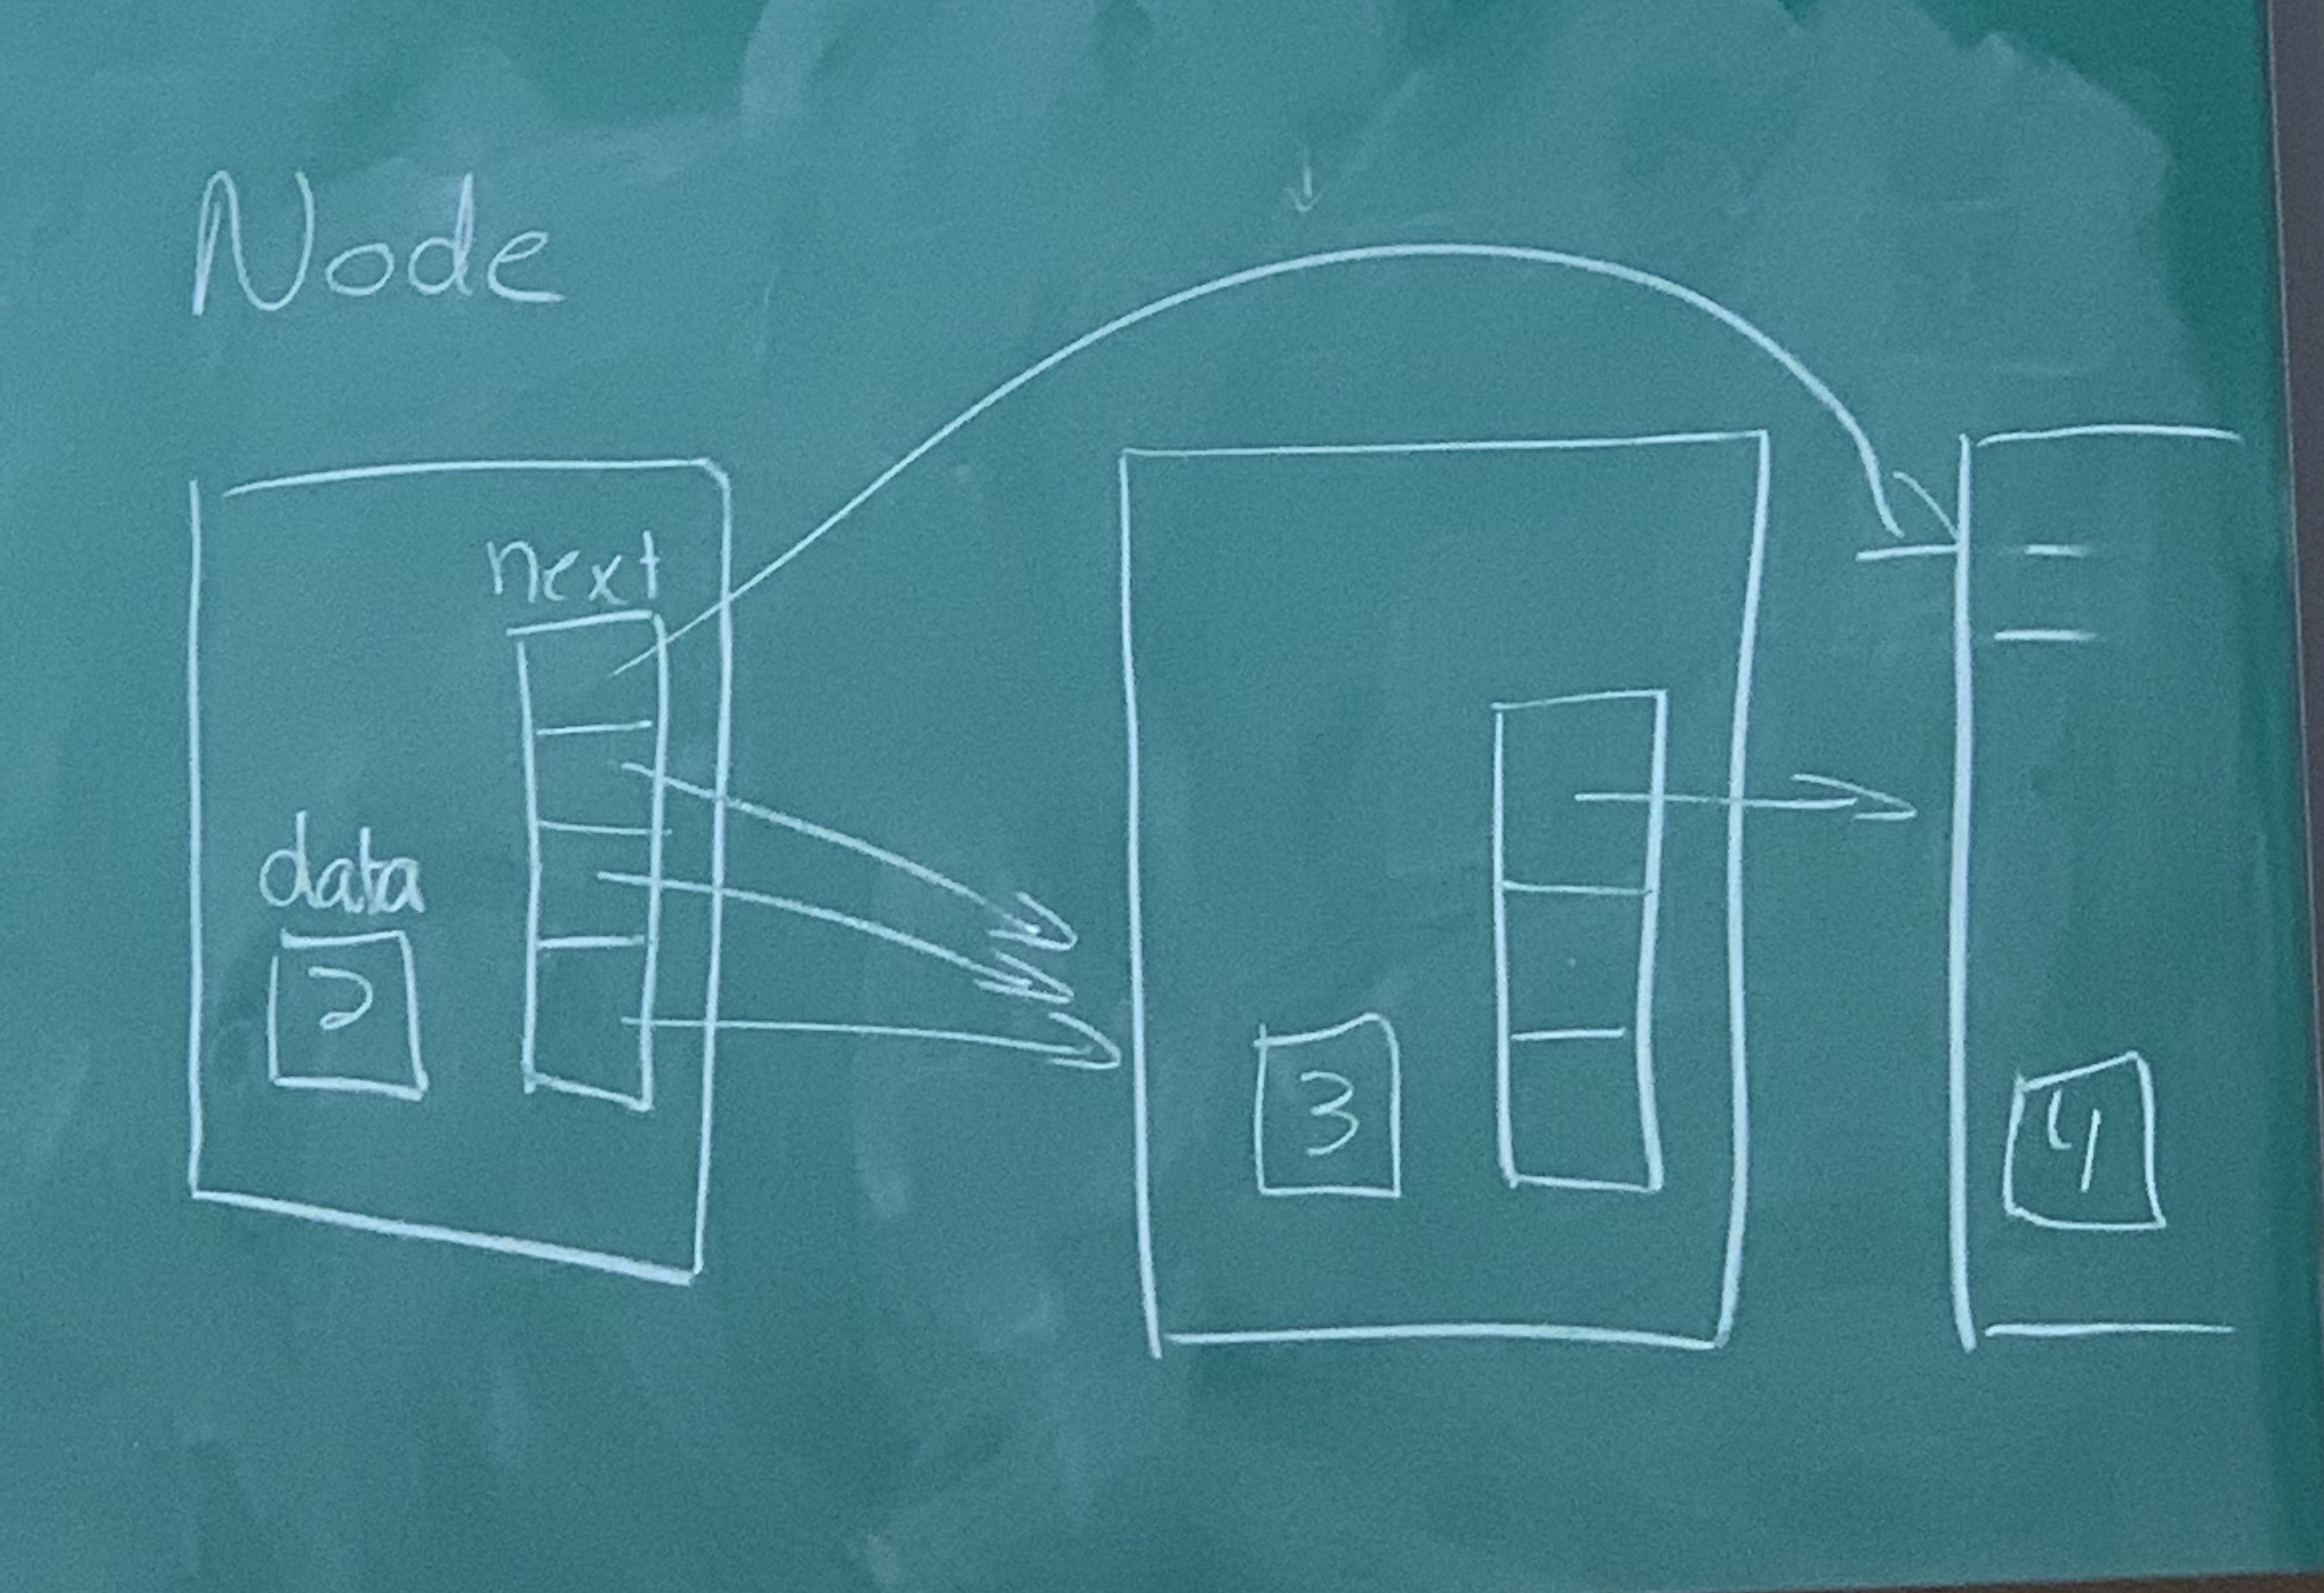 Node
next
data
2
3
4